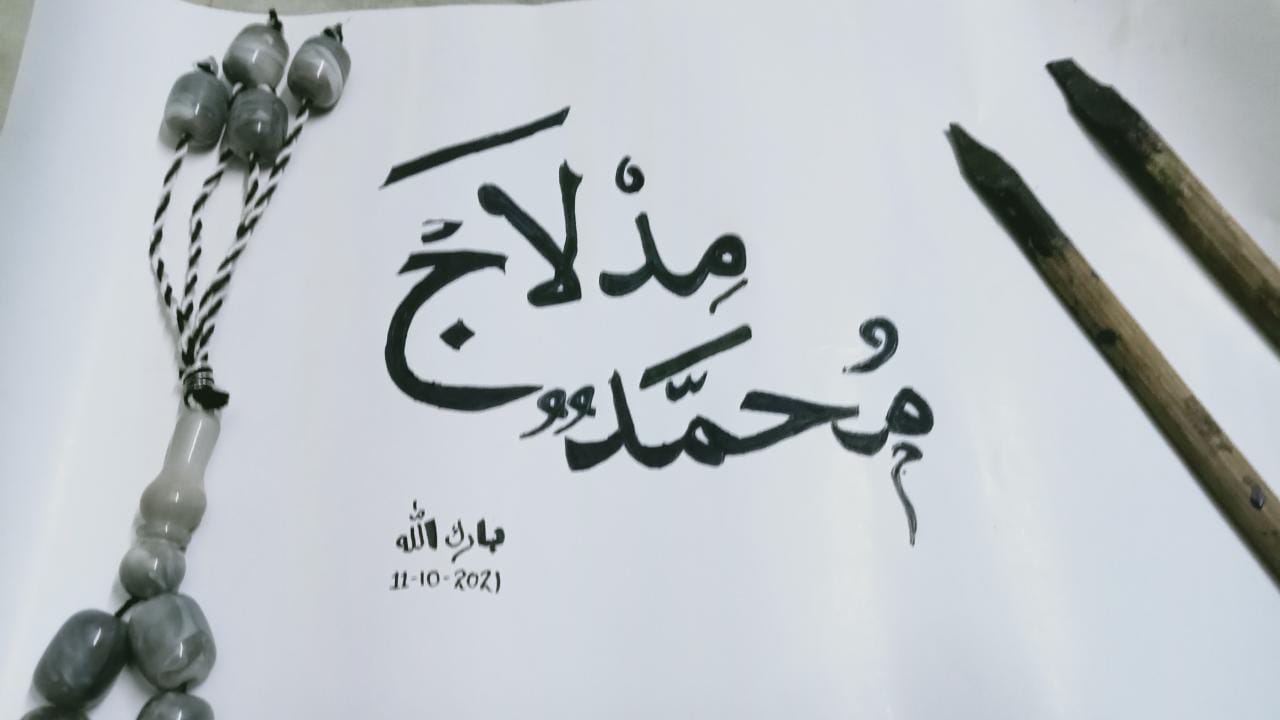 مِدْلَاجْ
مُحَمَّدٌ
بارك الله
11-10-2021